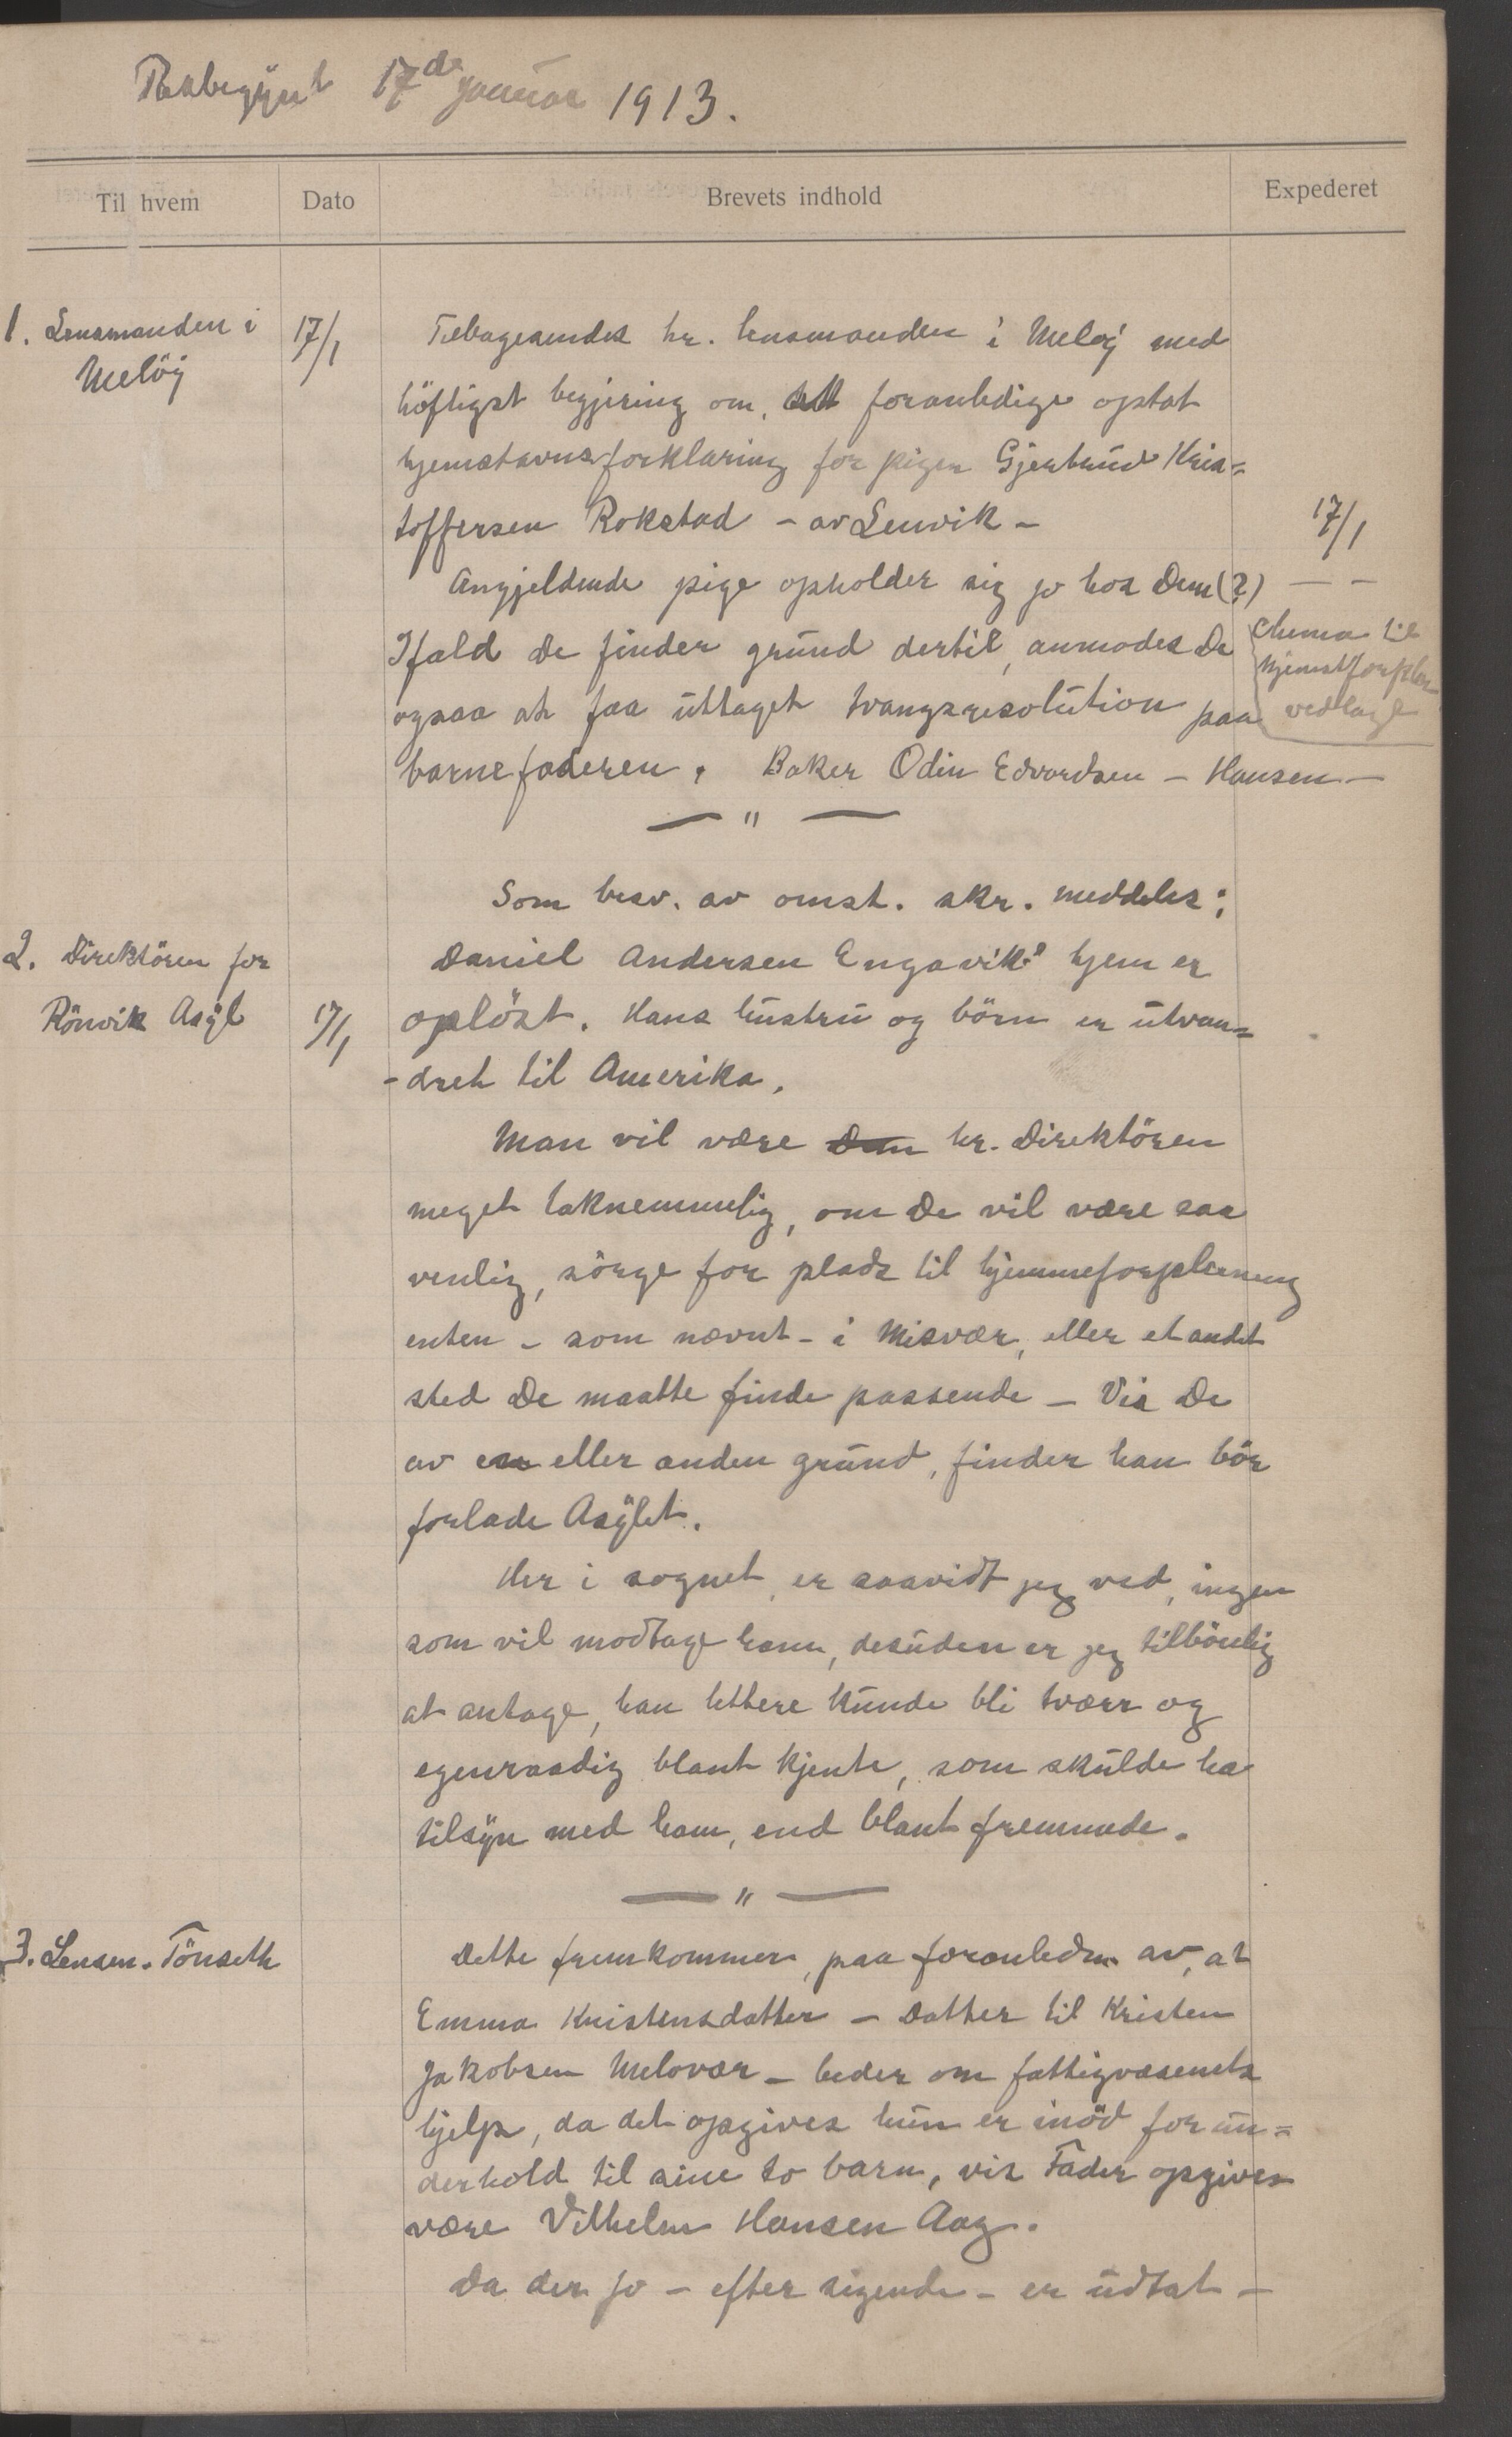 17de januar 1913.
Til hvem
Dato
Brevets indhold
Expederet
1. Lensmanden i
Melöy
17/1
Tilbagesendes hr. lensmanden i Melöy med
höfligst begjering om, at foranledige optat
hjemstavnsforklaring for pigen Gjertrud Kris=
toffersen Rokstad - av Lenvik -
17/1
Angjeldende pige opholder sig jo hos Dem (?)
— —
Ifald De finder grund dertil, anmodes De
ogsaa at faa uttaget tvangsresolution paa
barnefaderen. Baker Odin Edvardsen - Hansen -
Chema til
hjemstforklar
vedlagt
— " —
2. Direktören for
Rönvik Asyl
17/1
Som besv. av omst. skr. meddeles:
Daniel Andersen Engavik's hjem er
oplöst. Hans hustru og börn er utvan=
-dret til Amerika.
Man vil være Dem hr. Direktören
meget taknemmelig, om De vil være saa
venlig, sörge for plads til hjemmeforpleining
enten - som nævnt - i Misvær, eller et andet
sted De maatte finde passende - Vis De
av en eller anden grund, finder han bör
forlade Asylet.
Her i sognet, er saavidt jeg ved, ingen
som vil modtage ham, desuden er jeg tilböielig
at antage, han lettere kunde bli tvær og
egenraadig blant kjente, som skulde ha
tilsyn med ham, end blant fremmede.
— " —
3. Lensm. Tönseth
Dette fremkommer, paa foranledn. av, at
Emma Kristensdatter - Datter til Kristen
Jakobsen Melovær - beder om fattigvæsenets
hjelp, da det opgives hun er i nöd for un=
derhold til sine to barn, vis Fader opgives
være Vilhelm Hansen Aag.
Da der jo - efter sigende - er udtat -